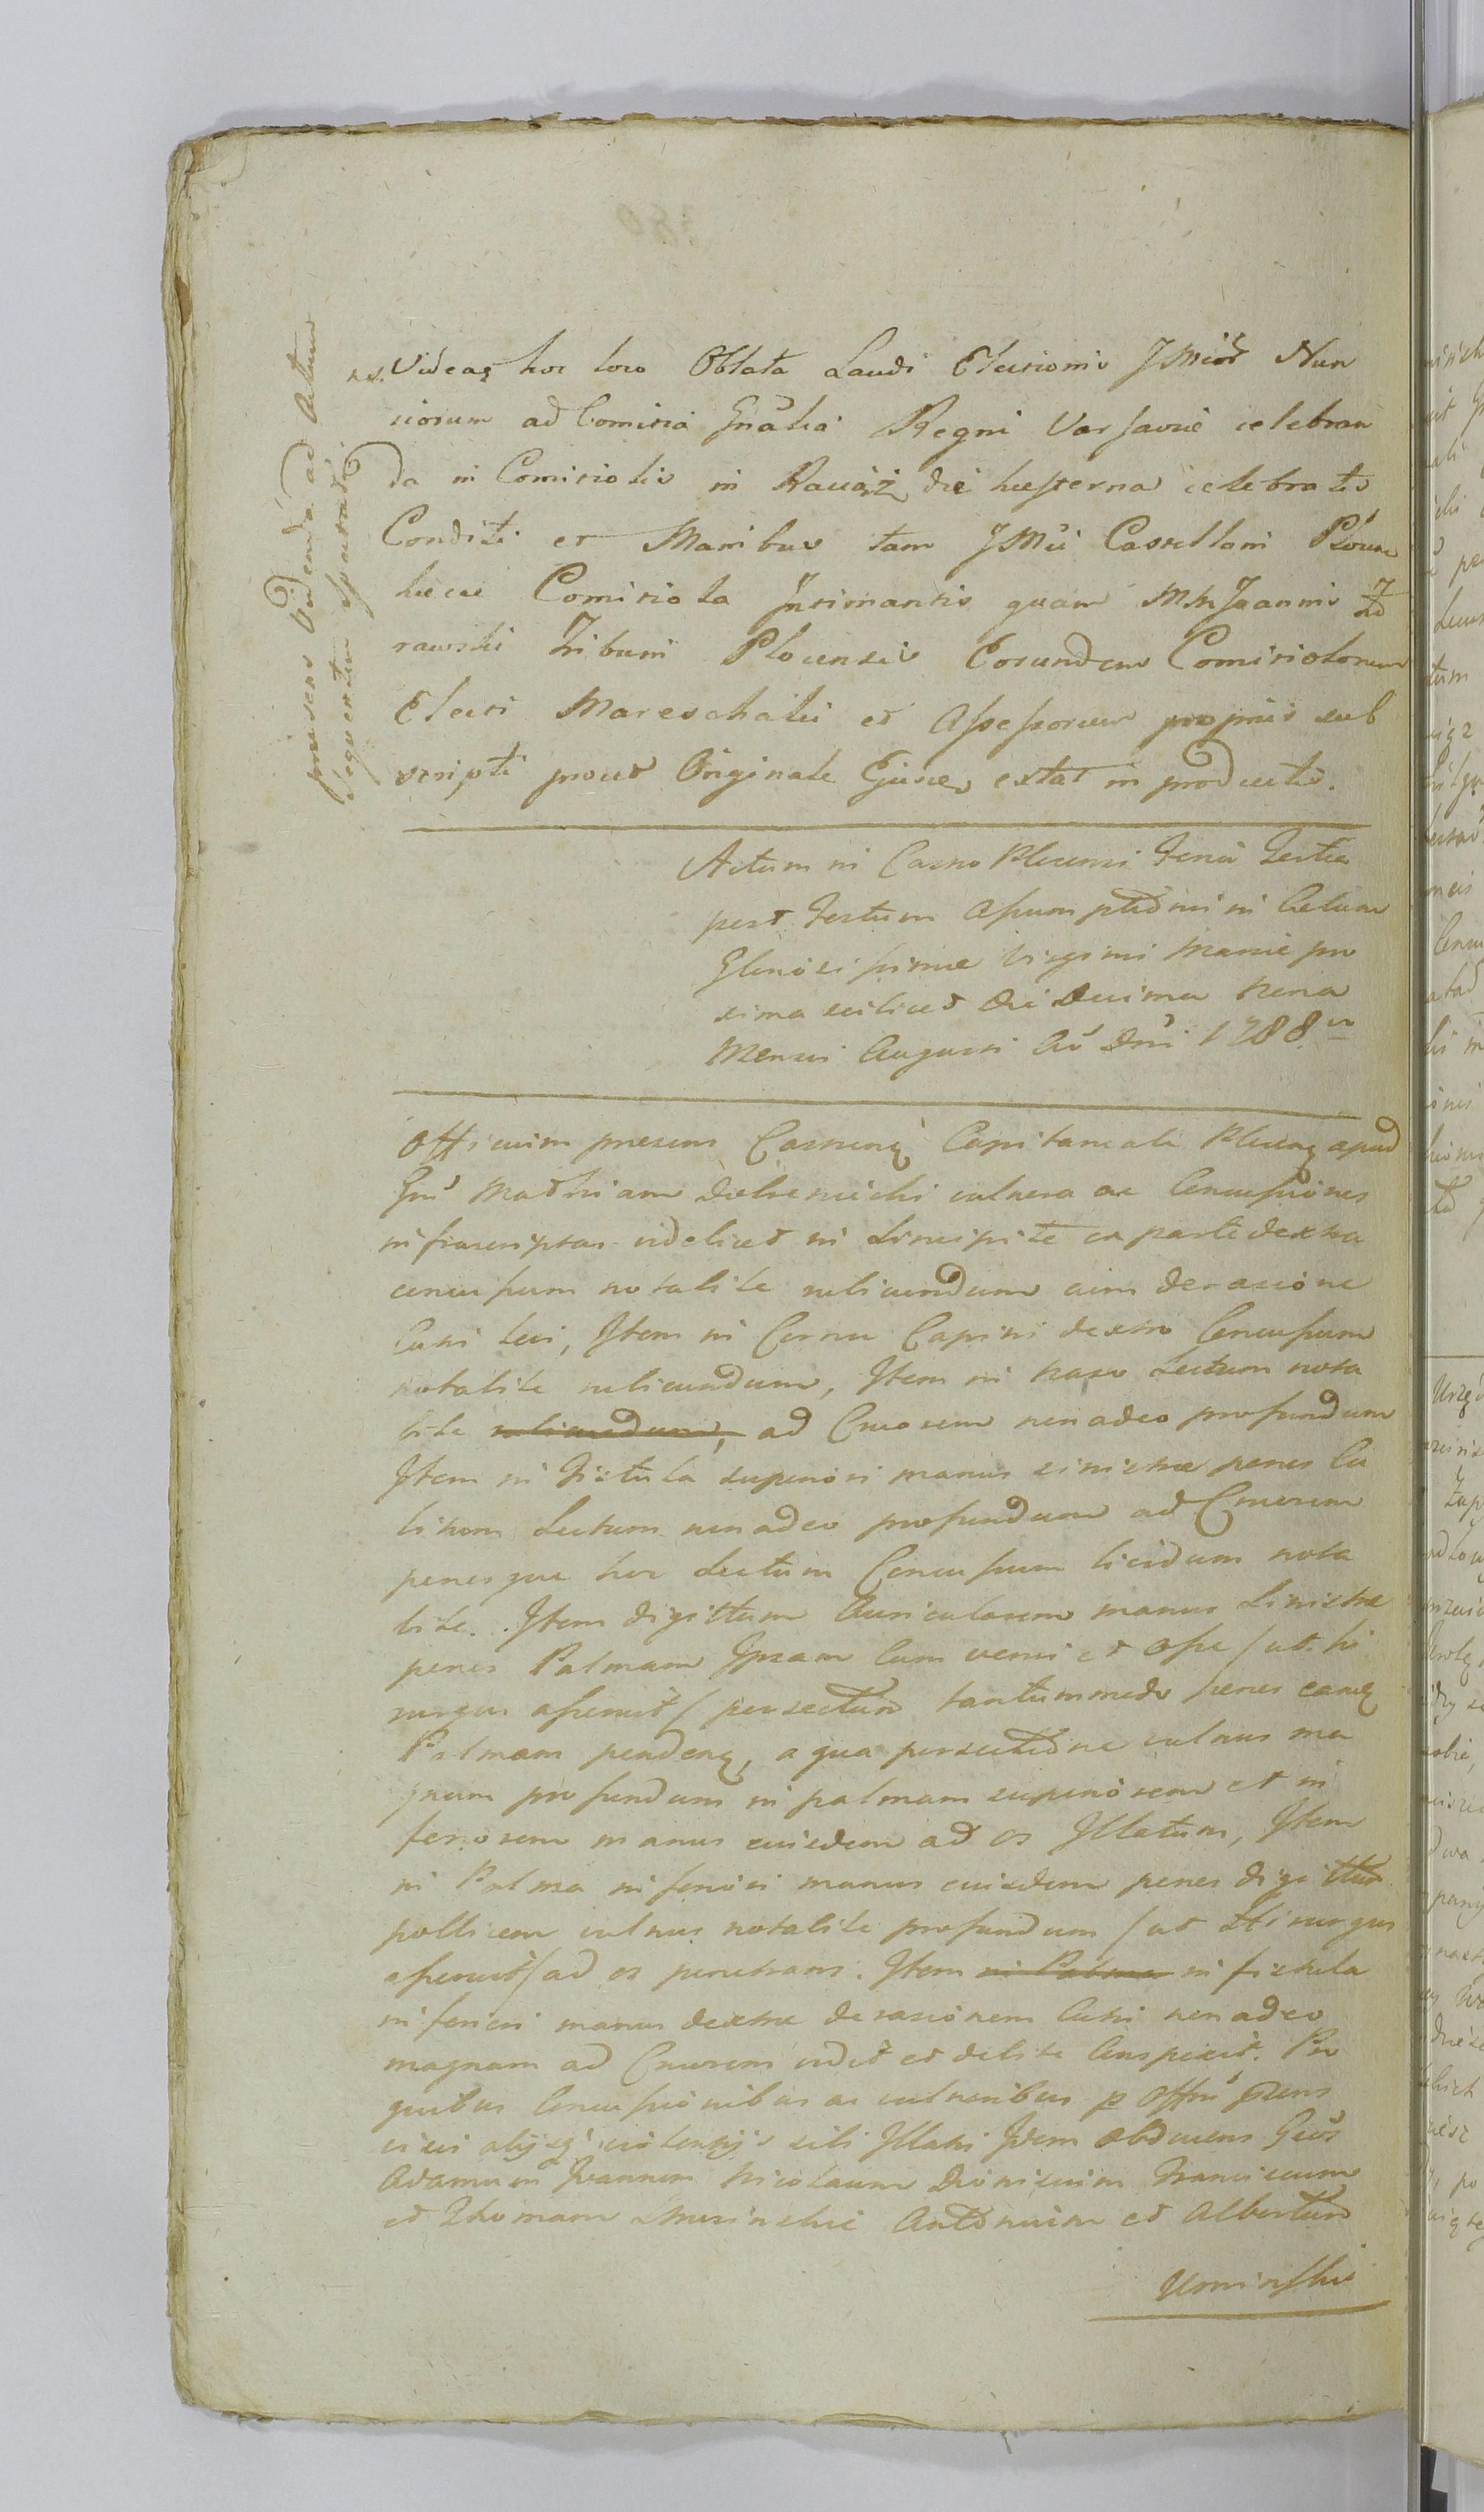 præsens Videnda ad Actum
sequentem spectat
ns. Videas hoc loco Oblata Laudi Electionis JMiör Nun
ciorum ad Comitia Gnãlia Regni Varsaviæ celebran
da in Comitiolis in Raciąż die hesterna celebratis
Conditi et Manibus tam JMci Castellani Plocen
hæcce Comitiola Intimantis quam MM Joannis Zd
rawski Tribuni Plocensis Eorundem Comitiolorum
Electi Mareschalci et Assessorum propriis sub
scripti prout Originale Ejusce extat in productis.
Actum in Castro Plocensi Feria Tertia
post Festum Assumptionis in Celum
Gloriosissimæ Virginis Mariæ pro
xima scilicet die Decima Nona
Mensis Augusti Aõ Dni 1788 vo
Officium præsens Castrenę Capitaneale Plocenę apud
Gnũ Mathiam vulnera ac Concussiones
infrascriptas videlicet in Sincipite ex parte dextra
concussum notabile rubicundum cum derasione
Cutis levi, Item in Cornu Capitis dextro Concussum
notabile rubicundum, Item in naso Sectum nota
bile rubicundum, ad Cruorem non adeo profundum
Item in Fistula superiori manus sinistræ penes Cu
bitum Sectum non adeo profundum ad Cruorem
penesque hoc Sectum Concussum lividum nota
bile. Item digittum Auricularem manus Sinistræ
penes Palmam Ipsam Cum venis et osse / ut hi
rurgus asseruit / persectum tantummodo penes eamę
Palmam pendenę, a qua persectione vulnus ma
gnum profundum in palmam superiorem et in
feriorem manus eiusdem ad os Illatum, Item
in Palma inferiori manus eiusdem penes digittum
pollicem vulnus notabile profundum / ut Hirurgus
asseruit / ad os penetrans. Item in Palma in fistula
inferiori manus dextræ derasionem Cutis non adeo
magnam ad Cruorem vidit et debite Conspexit. Pro
quibus Concussionibus ac vulneribus p Offm præns
visis alijsq violentijs sibi Illatis Idem obducens Gnos
Adamum Joannem Nicolaum Dionisium Franciscum
et Thomam Antonium et Albertum
Uminskie